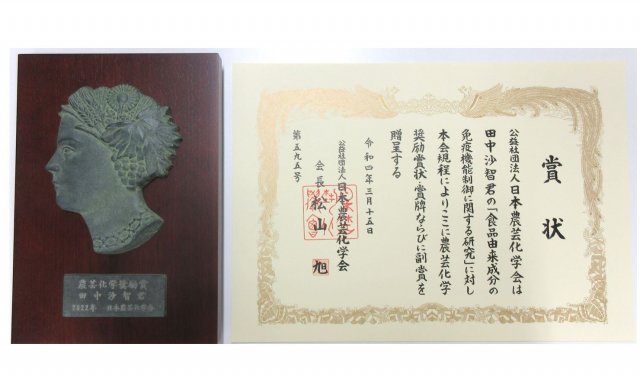 農芸化学奨励賞
田中沙智君
2022年 日本農芸化学会
賞状
公益社団法人日本農芸化学会は
田中沙智君の「食品由来成分の
免疫機能制御に関する研究」に対し
本会規程によりここに農芸化学
奨励賞状・賞牌ならびに副賞を
贈呈する
令和四年三月十五日
公益社団法人日本農芸化学会
会長 松山 旭
第五九五号